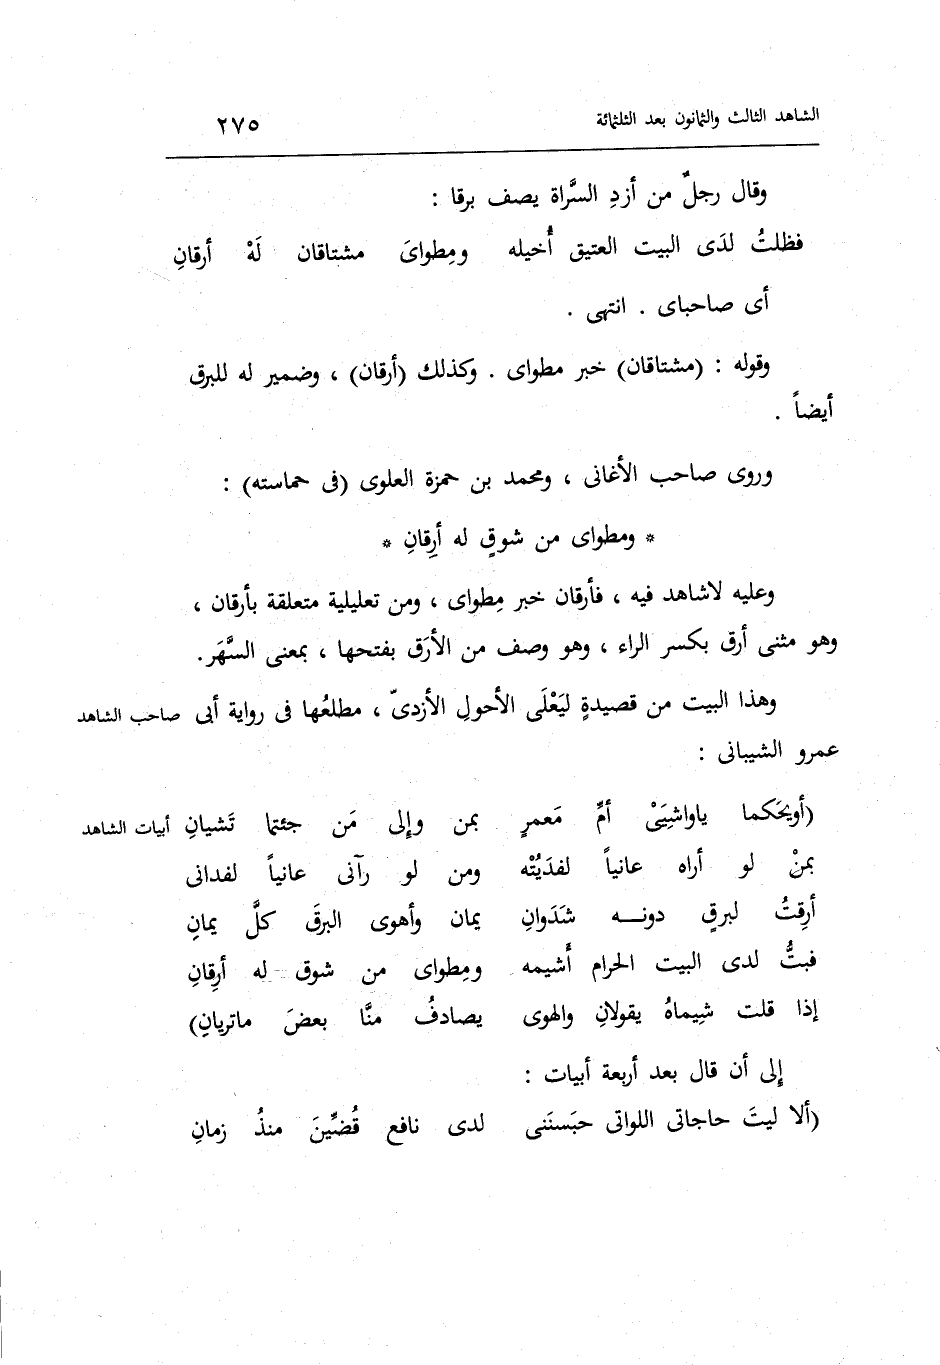 الشاهد الثالث والثمانون بعد الثلثمائة ٢٧٥
وقال رجلٌ من أزدِ السَّراة يصف برقا :
فظلتُ لدَى البيت العتيق أُخيله ومِطوایَ مشتاقان لَهْ أرقانِ
أى صاحباى . انتهى .
وقوله : (مشتاقان) خبر مطواى . وكذلك (أرقان) ، وضمير له للبرق
أيضاً .
وروى صاحب الأغانى ، ومحمد بن حمزة العلوى (فى حماسته) :
* ومطواى من شوقٍ له أرِقانِ *
وعليه لاشاهد فيه ، فأرقان خبر مِطواى ، ومن تعليلية متعلقة بأرقان ،
وهو مثنى أرق بكسر الراء ، وهو وصف من الأرَق بفتحها ، بمعنى السَّهَر.
وهذا البيت من قصيدةٍ ليَعْلَى الأحولِ الأزدىّ ، مطلعُها فى رواية أبى صاحب الشاهد
عمرو الشيبانى :
(أويحَكما ياواشِيَىْ أمِّ مَعمرٍ بمن وإلى مَن جئتما تَشيانِ أبيات الشاهد
بمنْ لو أراه عانياً لفدَيْتُه ومن لو رآنى عانياً لفدانى
أرِقتُ لبرقٍ دونـه شَدَوانِ يمان وأهوى البرقَ كلَّ يمانِ
فبتُّ لدى البيت الحرام أَشيمه ومِطواى من شوق له أرِقانِ
إذا قلت شِيماهُ يقولانِ والهوى يصادفُ منَّا بعضَ ماتريانِ)
إلى أن قال بعد أربعة أبيات :
(ألا ليتَ حاجاتى اللواتى حبَسنَنى لدى نافع قُضِّينَ منذُ زمانِ